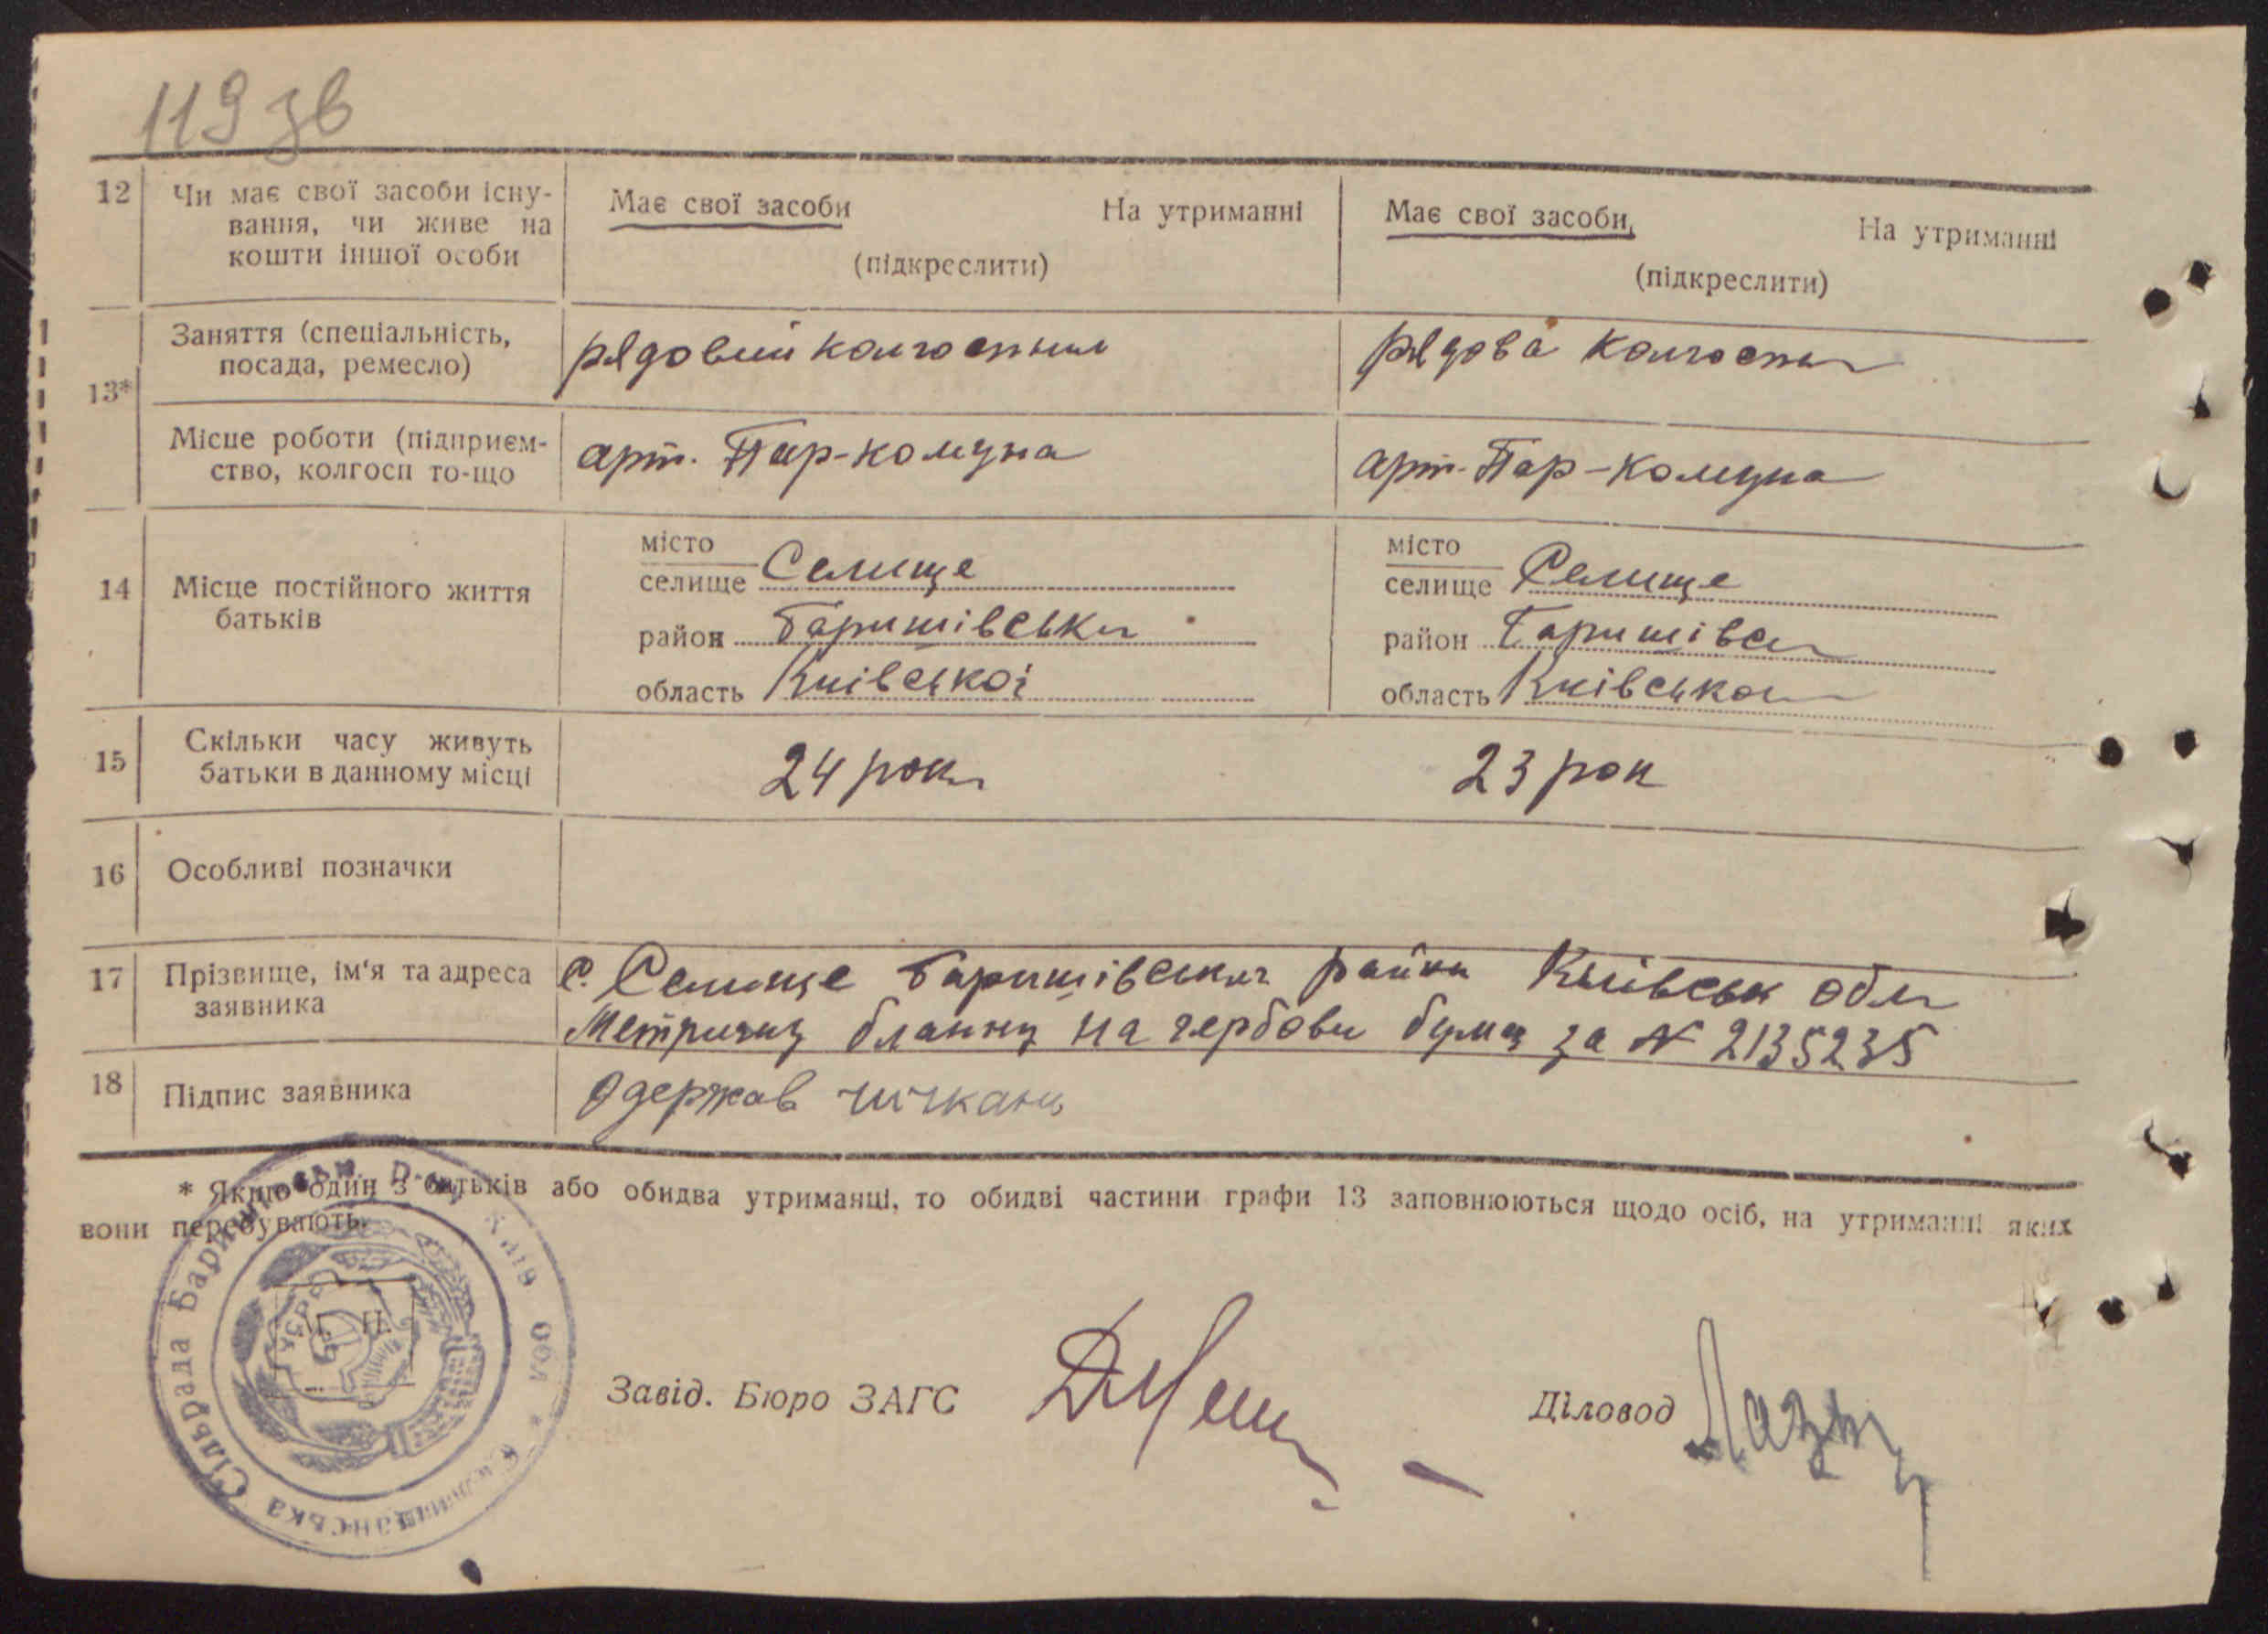 119 зв
12 Чи має свої засоби існу-
вання, чи живе на
кошти іншої особи
Має свої засоби На утриманні
(підкреслити)
Має свої засоби, На утриманні
(підкреслити)
13*
Заняття (спеціальність,
посада, ремесло)
рядовий колгоспник
рядова колгоспн
Місце роботи (підприєм-
ство, колгосп то-що
арт. Пар-комуна
арт. Пар-комуна
14 Місце постійного життя
батьків
місто
селище Селище
район Баришівськ
область Київської
місто
селище Селище
район Баришівс
область Київсько
15 Скільки часу живуть
батьки в данному місці
24 рок
23 рок
16 Особливі позначки
17 Прізвище, ім'я та адреса
заявника
с. Селище Баришівськ район Київськ обл
Метричну бланку на гербови бумаз за № 2135235
18 Підпис заявника
Одержав
* Якщо один з батьків або обидва утриманці, то обидві частини графи 13 заповнюються щодо осіб, на утриманні яких
вони перебувають.
Селищанська Сільрада Баришівськ. обл *
УСРР
Завід. Бюро ЗАГС
Діловод